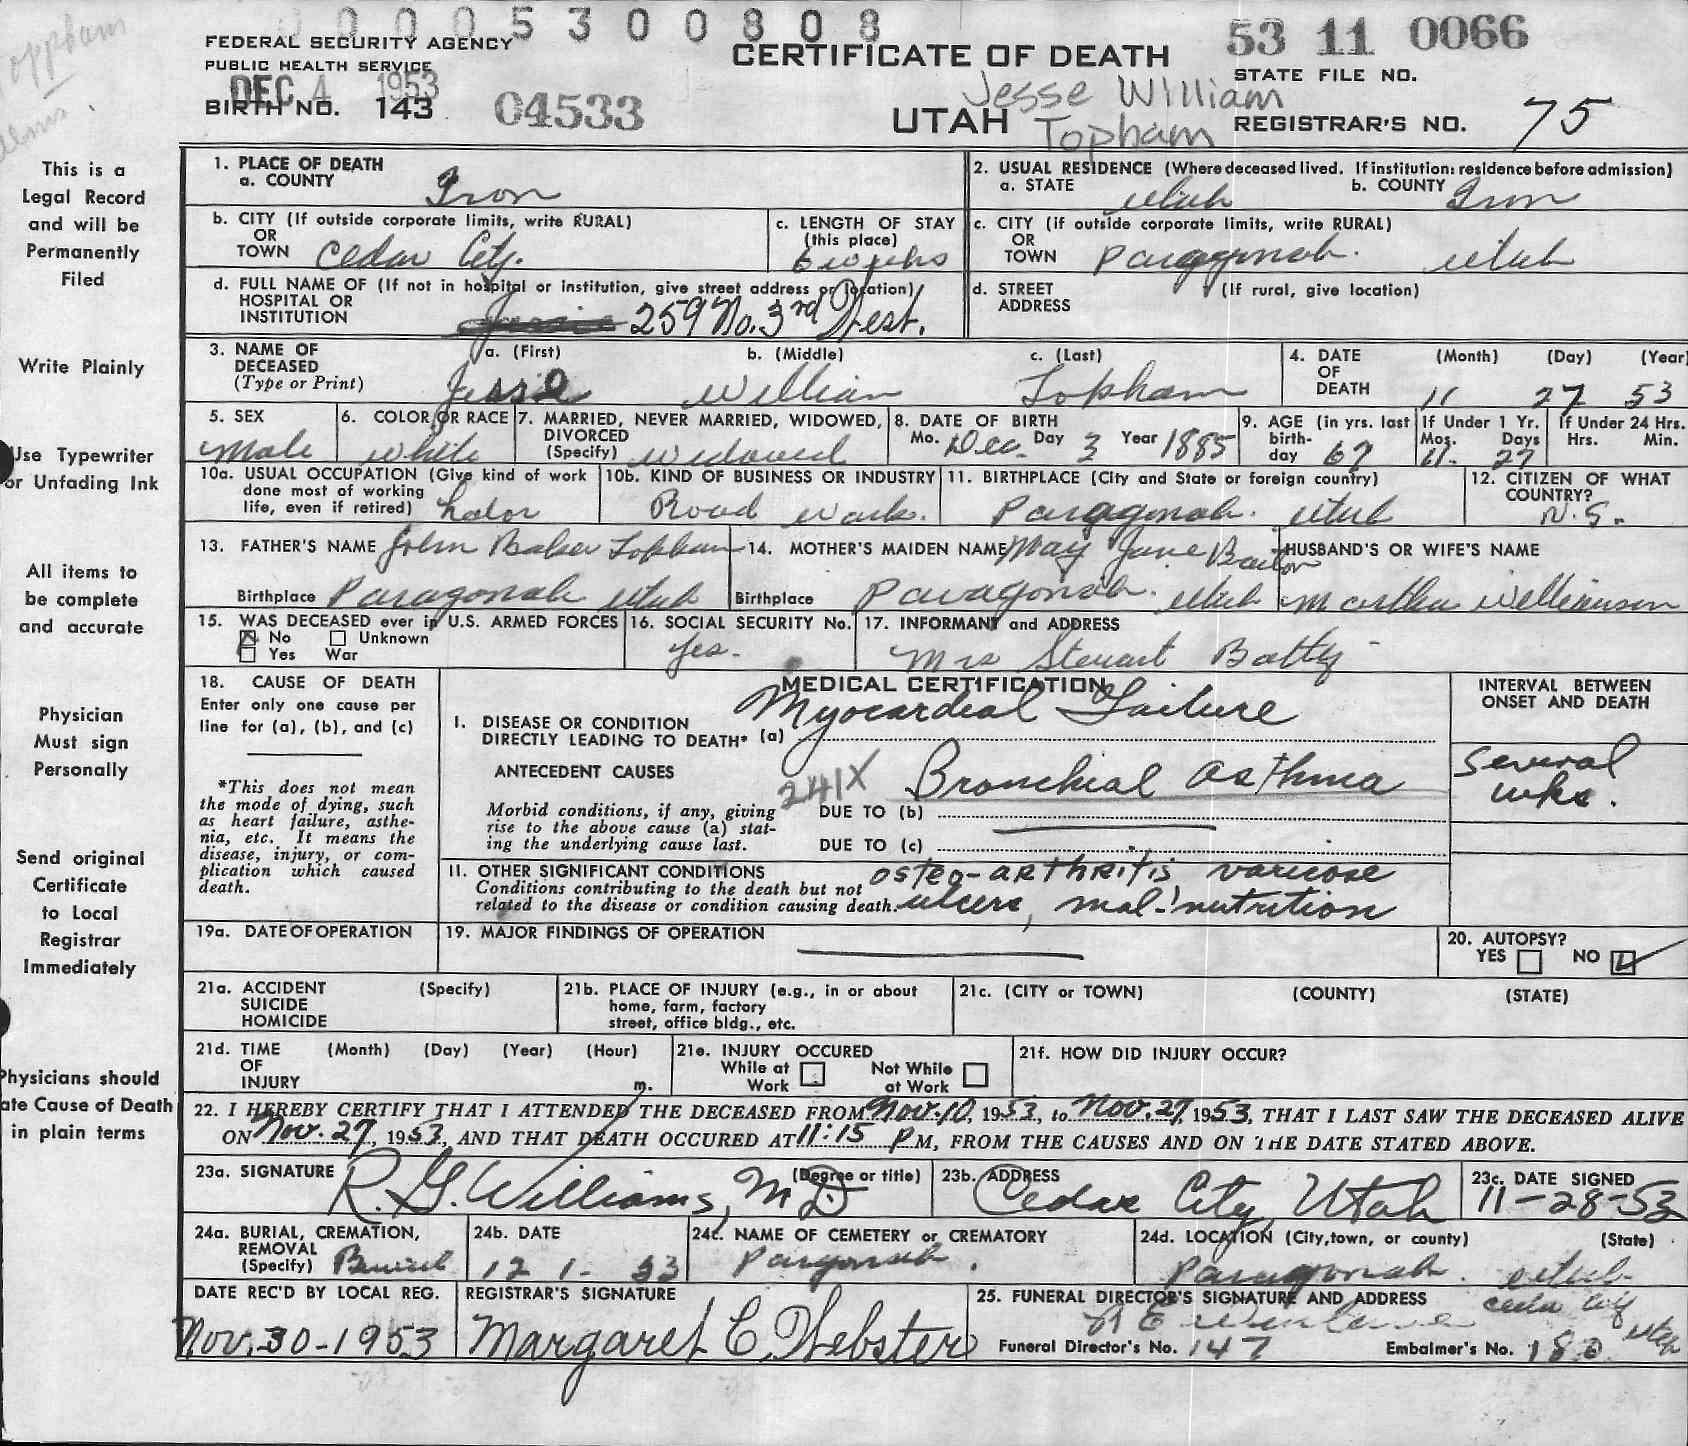 0 0 0 0 5 3 0 0 8 0 8
Topham
FEDERAL SECURITY AGENCY
PUBLIC HEALTH SERVICE
DEC 4 1953
BIRTH NO. 143 04533
CERTIFICATE OF DEATH
UTAH
Jesse William
Topham
53 11 0066
STATE FILE NO.
REGISTRAR'S NO. 75
This is a
Legal Record
and will be
Permanently
Filed
Write Plainly
Use Typewriter
or Unfading Ink
All items to
be complete
and accurate
Physician
Must sign
Personally
Send original
Certificate
to Local
Registrar
Immediately
Physicians should
ate Cause of Death
in plain terms
1. PLACE OF DEATH
a. COUNTY Iron
2. USUAL RESIDENCE (Where deceased lived. If institution: residence before admission)
a. STATE Utah b. COUNTY Iron
b. CITY (If outside corporate limits, write RURAL)
OR
TOWN Cedar City.
c. LENGTH OF STAY
(this place)
6 weeks
c. CITY (If outside corporate limits, write RURAL)
OR
TOWN Paragonah. Utah
d. FULL NAME OF (If not in hospital or institution, give street address or location)
HOSPITAL OR
INSTITUTION 259 No. 3rd West.
d. STREET (If rural, give location)
ADDRESS
3. NAME OF
DECEASED
(Type or Print)
a. (First) b. (Middle) c. (Last)
Jessie William Topham
4. DATE
OF
DEATH
(Month) (Day) (Year)
11 27 53
5. SEX
Male
6. COLOR OR RACE
White
7. MARRIED, NEVER MARRIED, WIDOWED,
DIVORCED
(Specify) Widowed
8. DATE OF BIRTH
Mo. Dec. Day 3 Year 1885
9. AGE (in yrs. last
birth-
day 67
If Under 1 Yr.
Mos. Days
11. 27
If Under 24 Hrs.
Hrs. Min.
10a. USUAL OCCUPATION (Give kind of work
done most of working
life, even if retired) Labor
10b. KIND OF BUSINESS OR INDUSTRY
Road Work.
11. BIRTHPLACE (City and State or foreign country)
Paragonah. Utah
12. CITIZEN OF WHAT
COUNTRY?
U.S.
13. FATHER'S NAME John Baker Topham
Birthplace Paragonah Utah
14. MOTHER'S MAIDEN NAME May Jane Barton
Birthplace Paragonah. Utah
HUSBAND'S OR WIFE'S NAME
Martha Wilkinson
15. WAS DECEASED ever in U.S. ARMED FORCES
No Unknown
Yes War
16. SOCIAL SECURITY No.
Yes.
17. INFORMANT and ADDRESS
Mrs Stewart Batty
18. CAUSE OF DEATH
Enter only one cause per
line for (a), (b), and (c)
*This does not mean
the mode of dying, such
as heart failure, asthe-
nia, etc. It means the
disease, injury, or com-
plication which caused
death.
MEDICAL CERTIFICATION
I. DISEASE OR CONDITION
DIRECTLY LEADING TO DEATH* (a) Myocardial Failure
ANTECEDENT CAUSES
241X
Morbid conditions, if any, giving
rise to the above cause (a) stat-
ing the underlying cause last.
DUE TO (b) Bronchial asthma
DUE TO (c)
INTERVAL BETWEEN
ONSET AND DEATH
Several
wks.
11. OTHER SIGNIFICANT CONDITIONS
Conditions contributing to the death but not
related to the disease or condition causing death.
osteo-arthritis varicose
ulcers, mal-nutrition
19a. DATE OF OPERATION
19. MAJOR FINDINGS OF OPERATION
20. AUTOPSY?
YES NO
21a. ACCIDENT (Specify)
SUICIDE
HOMICIDE
21b. PLACE OF INJURY (e.g., in or about
home, farm, factory
street, office bldg., etc.
21c. (CITY or TOWN) (COUNTY) (STATE)
21d. TIME (Month) (Day) (Year) (Hour)
OF
INJURY m.
21e. INJURY OCCURED
While at Not While
Work at Work
21f. HOW DID INJURY OCCUR?
22. I HEREBY CERTIFY THAT I ATTENDED THE DECEASED FROM Nov. 10, 1953, to Nov. 27, 1953, THAT I LAST SAW THE DECEASED ALIVE
ON Nov. 27, 1953, AND THAT DEATH OCCURED AT 11:15 P M, FROM THE CAUSES AND ON THE DATE STATED ABOVE.
23a. SIGNATURE (Degree or title)
R. G. Williams, MD
23b. ADDRESS
Cedar City, Utah
23c. DATE SIGNED
11-28-53
24a. BURIAL, CREMATION,
REMOVAL
(Specify) Burial
24b. DATE
12 1. 53
24c. NAME OF CEMETERY or CREMATORY
Paragonah.
24d. LOCATION (City, town, or county) (State)
Paragonah. Utah
DATE REC'D BY LOCAL REG.
Nov. 30-1953
REGISTRAR'S SIGNATURE
Margaret C. Webster
25. FUNERAL DIRECTOR'S SIGNATURE AND ADDRESS
Cedar City
Utah
Funeral Director's No. 147 Embalmer's No. 180